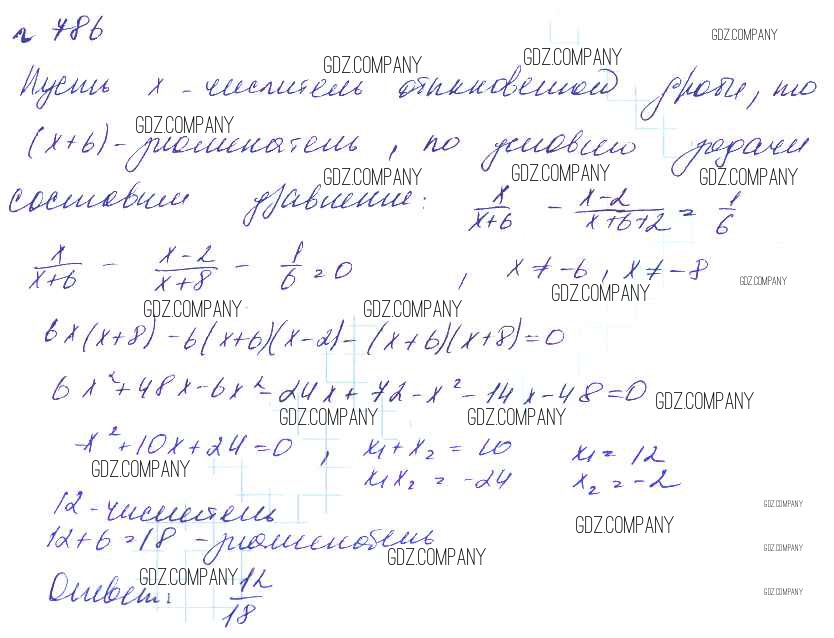 № 786
GDZ.COMPANY
GDZ.COMPANY
GDZ.COMPANY
Пусть x - числитель обыкновенной дроби, то
GDZ.COMPANY
(x+6) - знаменатель, по условию задачи
GDZ.COMPANY
GDZ.COMPANY
GDZ.COMPANY
составим уравнение: x/(x+6) - (x-2)/(x+6+2) = 1/6
x/(x+6) - (x-2)/(x+8) - 1/6 = 0 , x ≠ -6, x ≠ -8
GDZ.COMPANY
GDZ.COMPANY
GDZ.COMPANY
GDZ.COMPANY
6x(x+8) - 6(x+6)(x-2) - (x+6)(x+8) = 0
6x²+48x-6x²-24x+72-x²-14x-48=0
GDZ.COMPANY
GDZ.COMPANY
GDZ.COMPANY
-x²+10x+24=0 , x₁+x₂ = 10 x₁ = 12
GDZ.COMPANY
x₁x₂ = -24 x₂ = -2
12 - числитель
GDZ.COMPANY
GDZ.COMPANY
12+6=18 - знаменатель
GDZ.COMPANY
GDZ.COMPANY
Ответ: 12/18
GDZ.COMPANY
GDZ.COMPANY